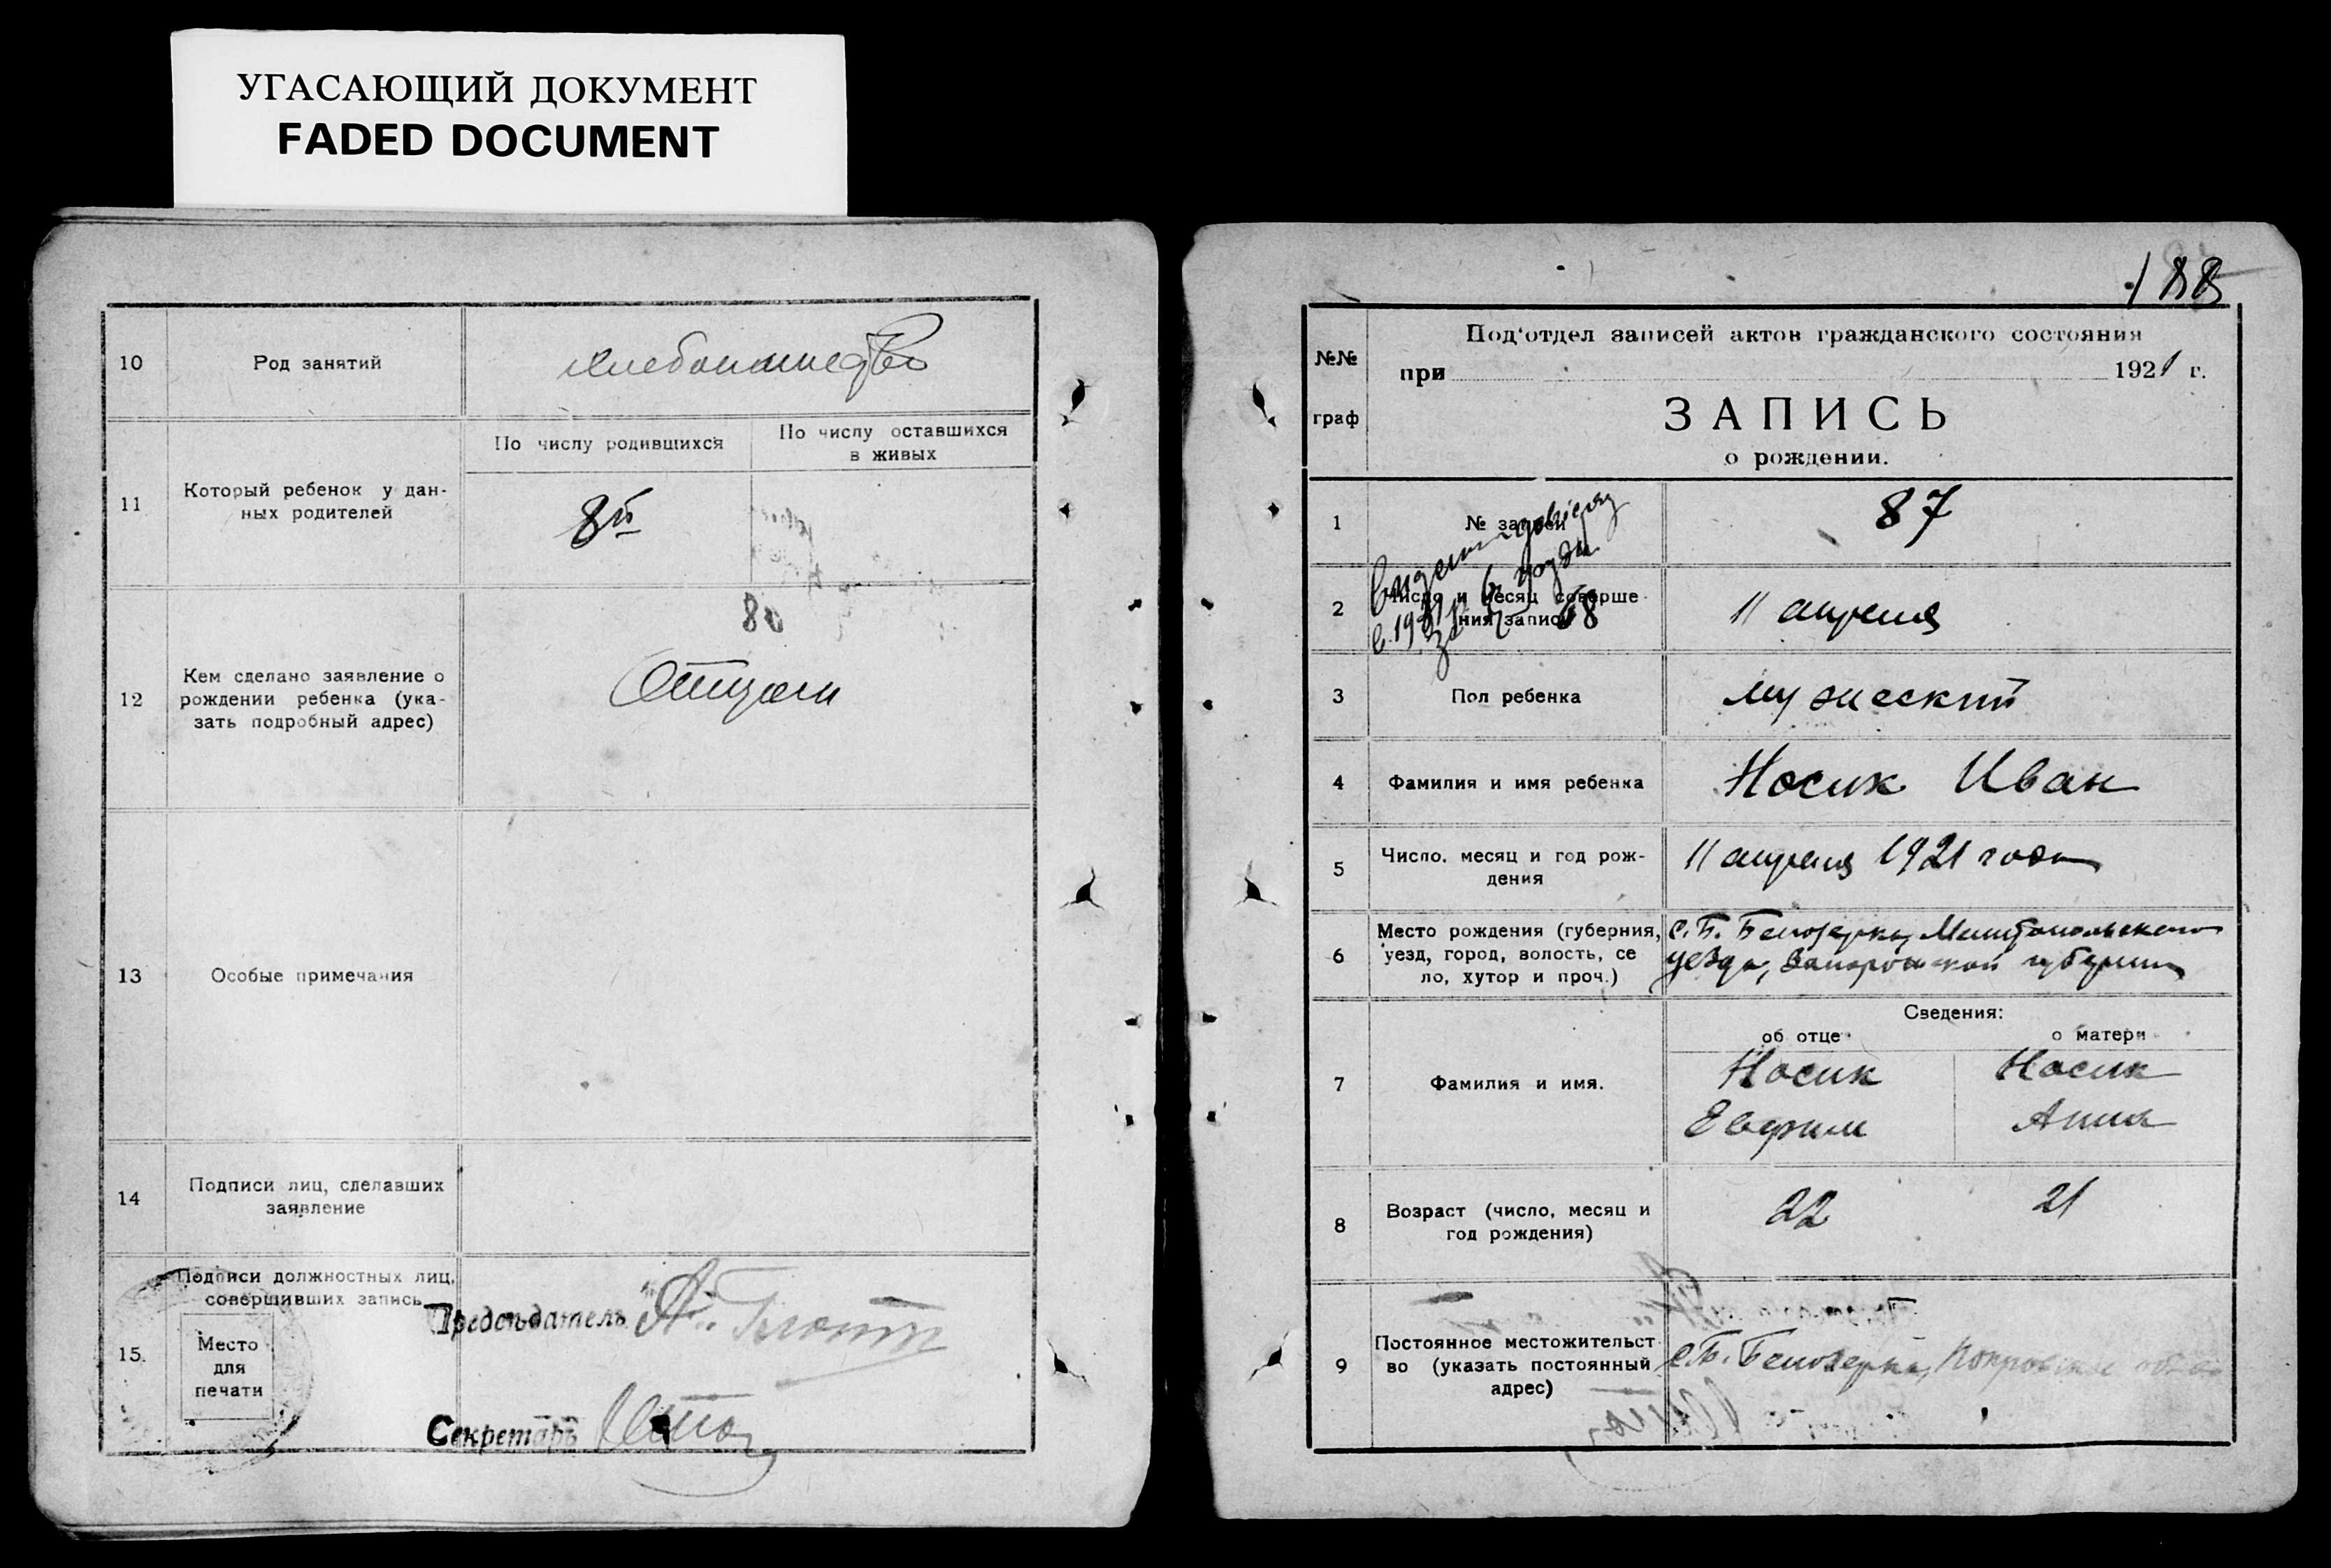 УГАСАЮЩИЙ ДОКУМЕНТ
FADED DOCUMENT
10
Род занятий
хлебопашество
11
Который ребенок у дан-
ных родителей
По числу родившихся
По числу оставшихся
в живых
8й
80
12
Кем сделано заявление о
рождении ребенка (ука-
зать подробный адрес)
Отцом
13
Особые примечания
14
Подписи лиц, сделавших
заявление
15.
Подписи должностных лиц,
совершивших запись
Место
для
печати
Председатель
Секретарь
188
№№
граф
Под'отдел записей актов гражданского состояния
при 1921 г.
ЗАПИСЬ
о рождении.
1
№ записи
87
2
Число и месяц соверше
ния записи
11 апреля
в 19
за № 68
3
Пол ребенка
мужеский
4
Фамилия и имя ребенка
Носик Иван
5
Число, месяц и год рож-
дения
11 апреля 1921 года
6
Место рождения (губерния,
уезд, город, волость, се
ло, хутор и проч.)
с. Б. Белозерка, Мелитопольского
уезда, Запорожской губернии
Сведения:
об отце
о матери
7
Фамилия и имя.
Носик
Евфим
Носик
Анна
8
Возраст (число, месяц и
год рождения)
22
21
9
Постоянное местожительст
во (указать постоянный
адрес)
с. Б. Белозерка,